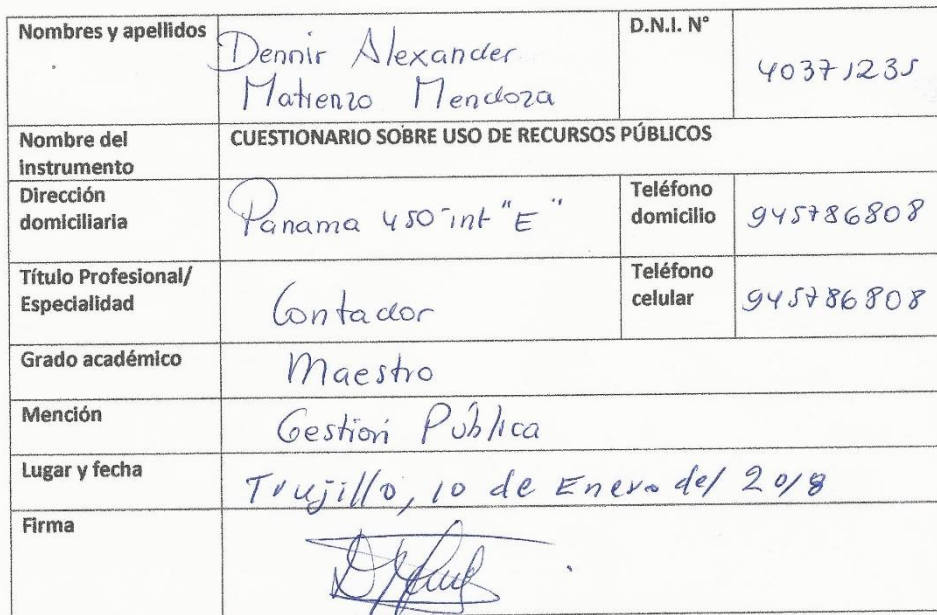 Nombres y apellidos
Dennir Alexander
Matienzo Mendoza
D.N.I. N°
40371235
Nombre del
instrumento
CUESTIONARIO SOBRE USO DE RECURSOS PÚBLICOS
Dirección
domiciliaria
Panama 450 int "E"
Teléfono
domicilio
945786808
Título Profesional/
Especialidad
Contador
Teléfono
celular
945786808
Grado académico
Maestro
Mención
Gestión Pública
Lugar y fecha
Trujillo, 10 de Enero del 2018
Firma